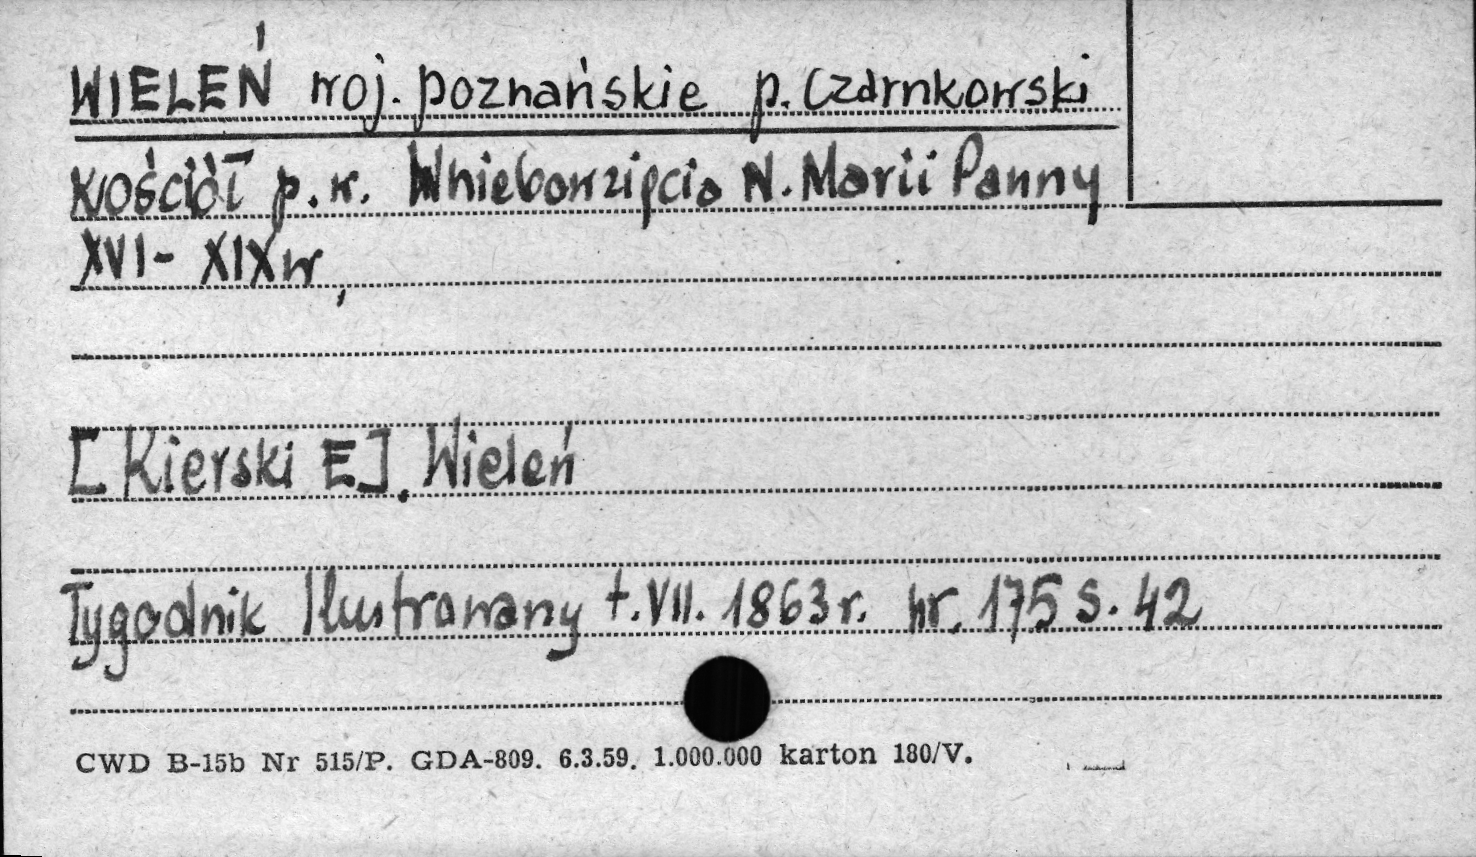 WIELEŃ woj. poznańskie p. Czarnkowski
Kościół p.w. Wniebowzięcia N. Marii Panny
XVI- XIX w,
[Kierski E]. Wieleń
Tygodnik Ilustrowany t. VII. 1863 r. nr. 175 s. 42
CWD B-15b Nr 515/P. GDA-809. 6.3.59. 1.000.000 karton 180/V.